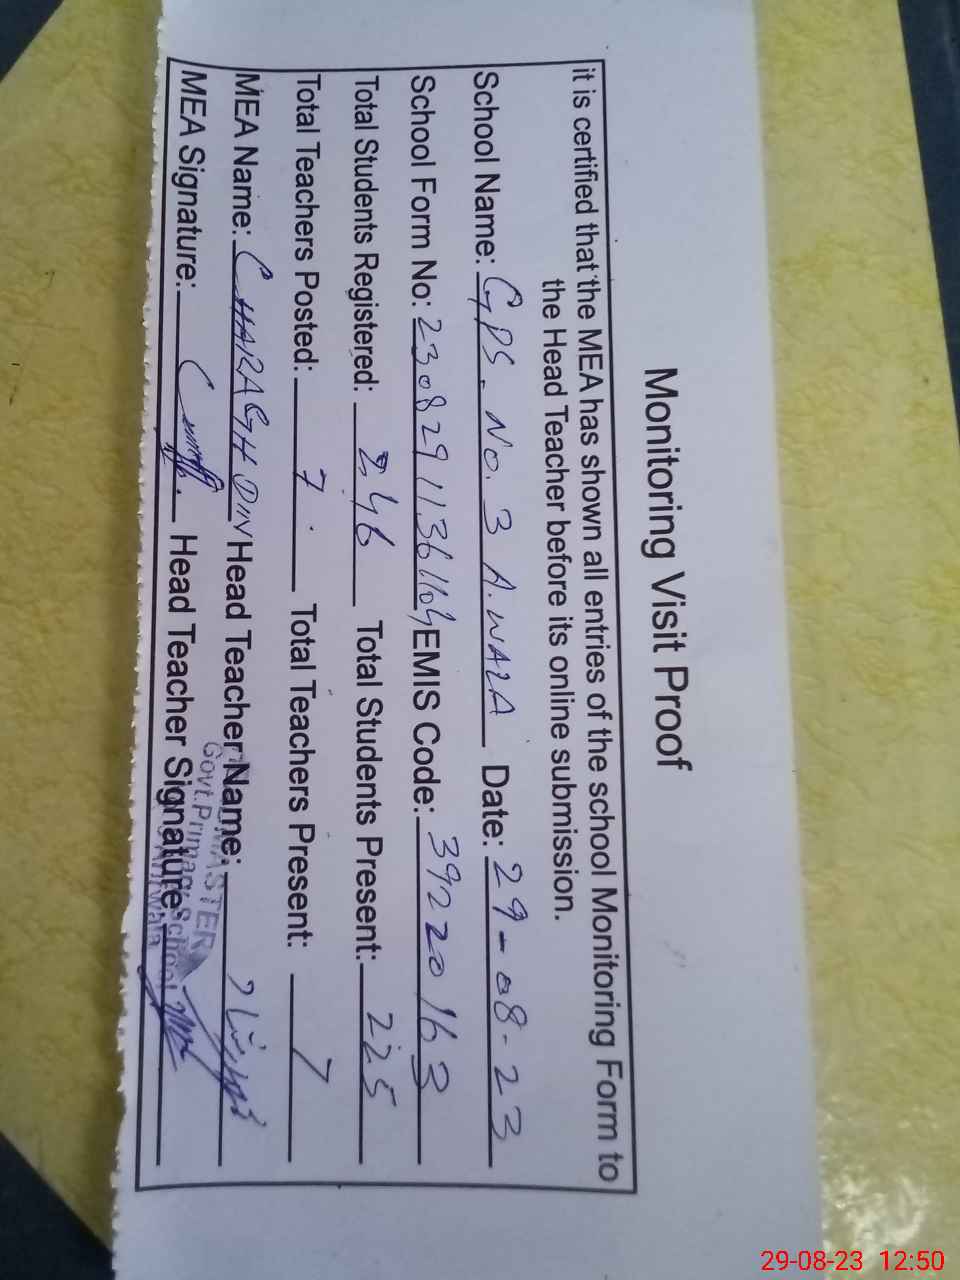 Monitoring Visit Proof
it is certified that the MEA has shown all entries of the school Monitoring Form to
the Head Teacher before its online submission.
School Name: GPS. No. 3 A. WALA Date: 29-08-23
School Form No: 23082911361104 EMIS Code: 39220163
Total Students Registered: 246 Total Students Present: 225
Total Teachers Posted: 7. Total Teachers Present: 7
MEA Name: CHARAGH DIN Head Teacher Name:
MEA Signature: Head Teacher Signature:
Govt. Primary School
29-08-23 12:50